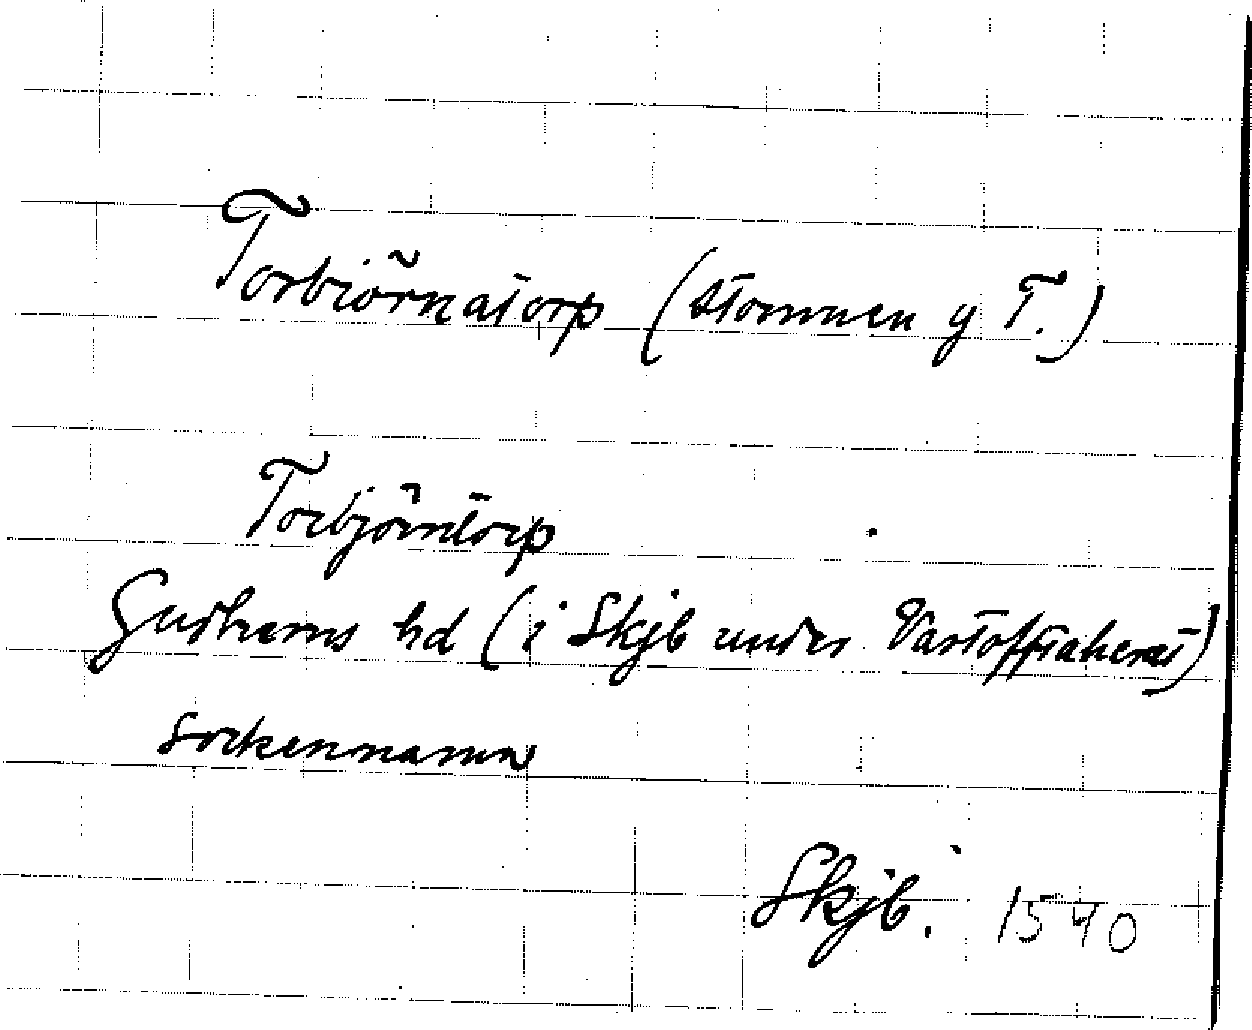 Torbiörnatorp (stommen y T.)
Torbjörntorp
Gudhems hd (i Skjb under Vartofftaherat)
sockennamn
Skjb. 1540